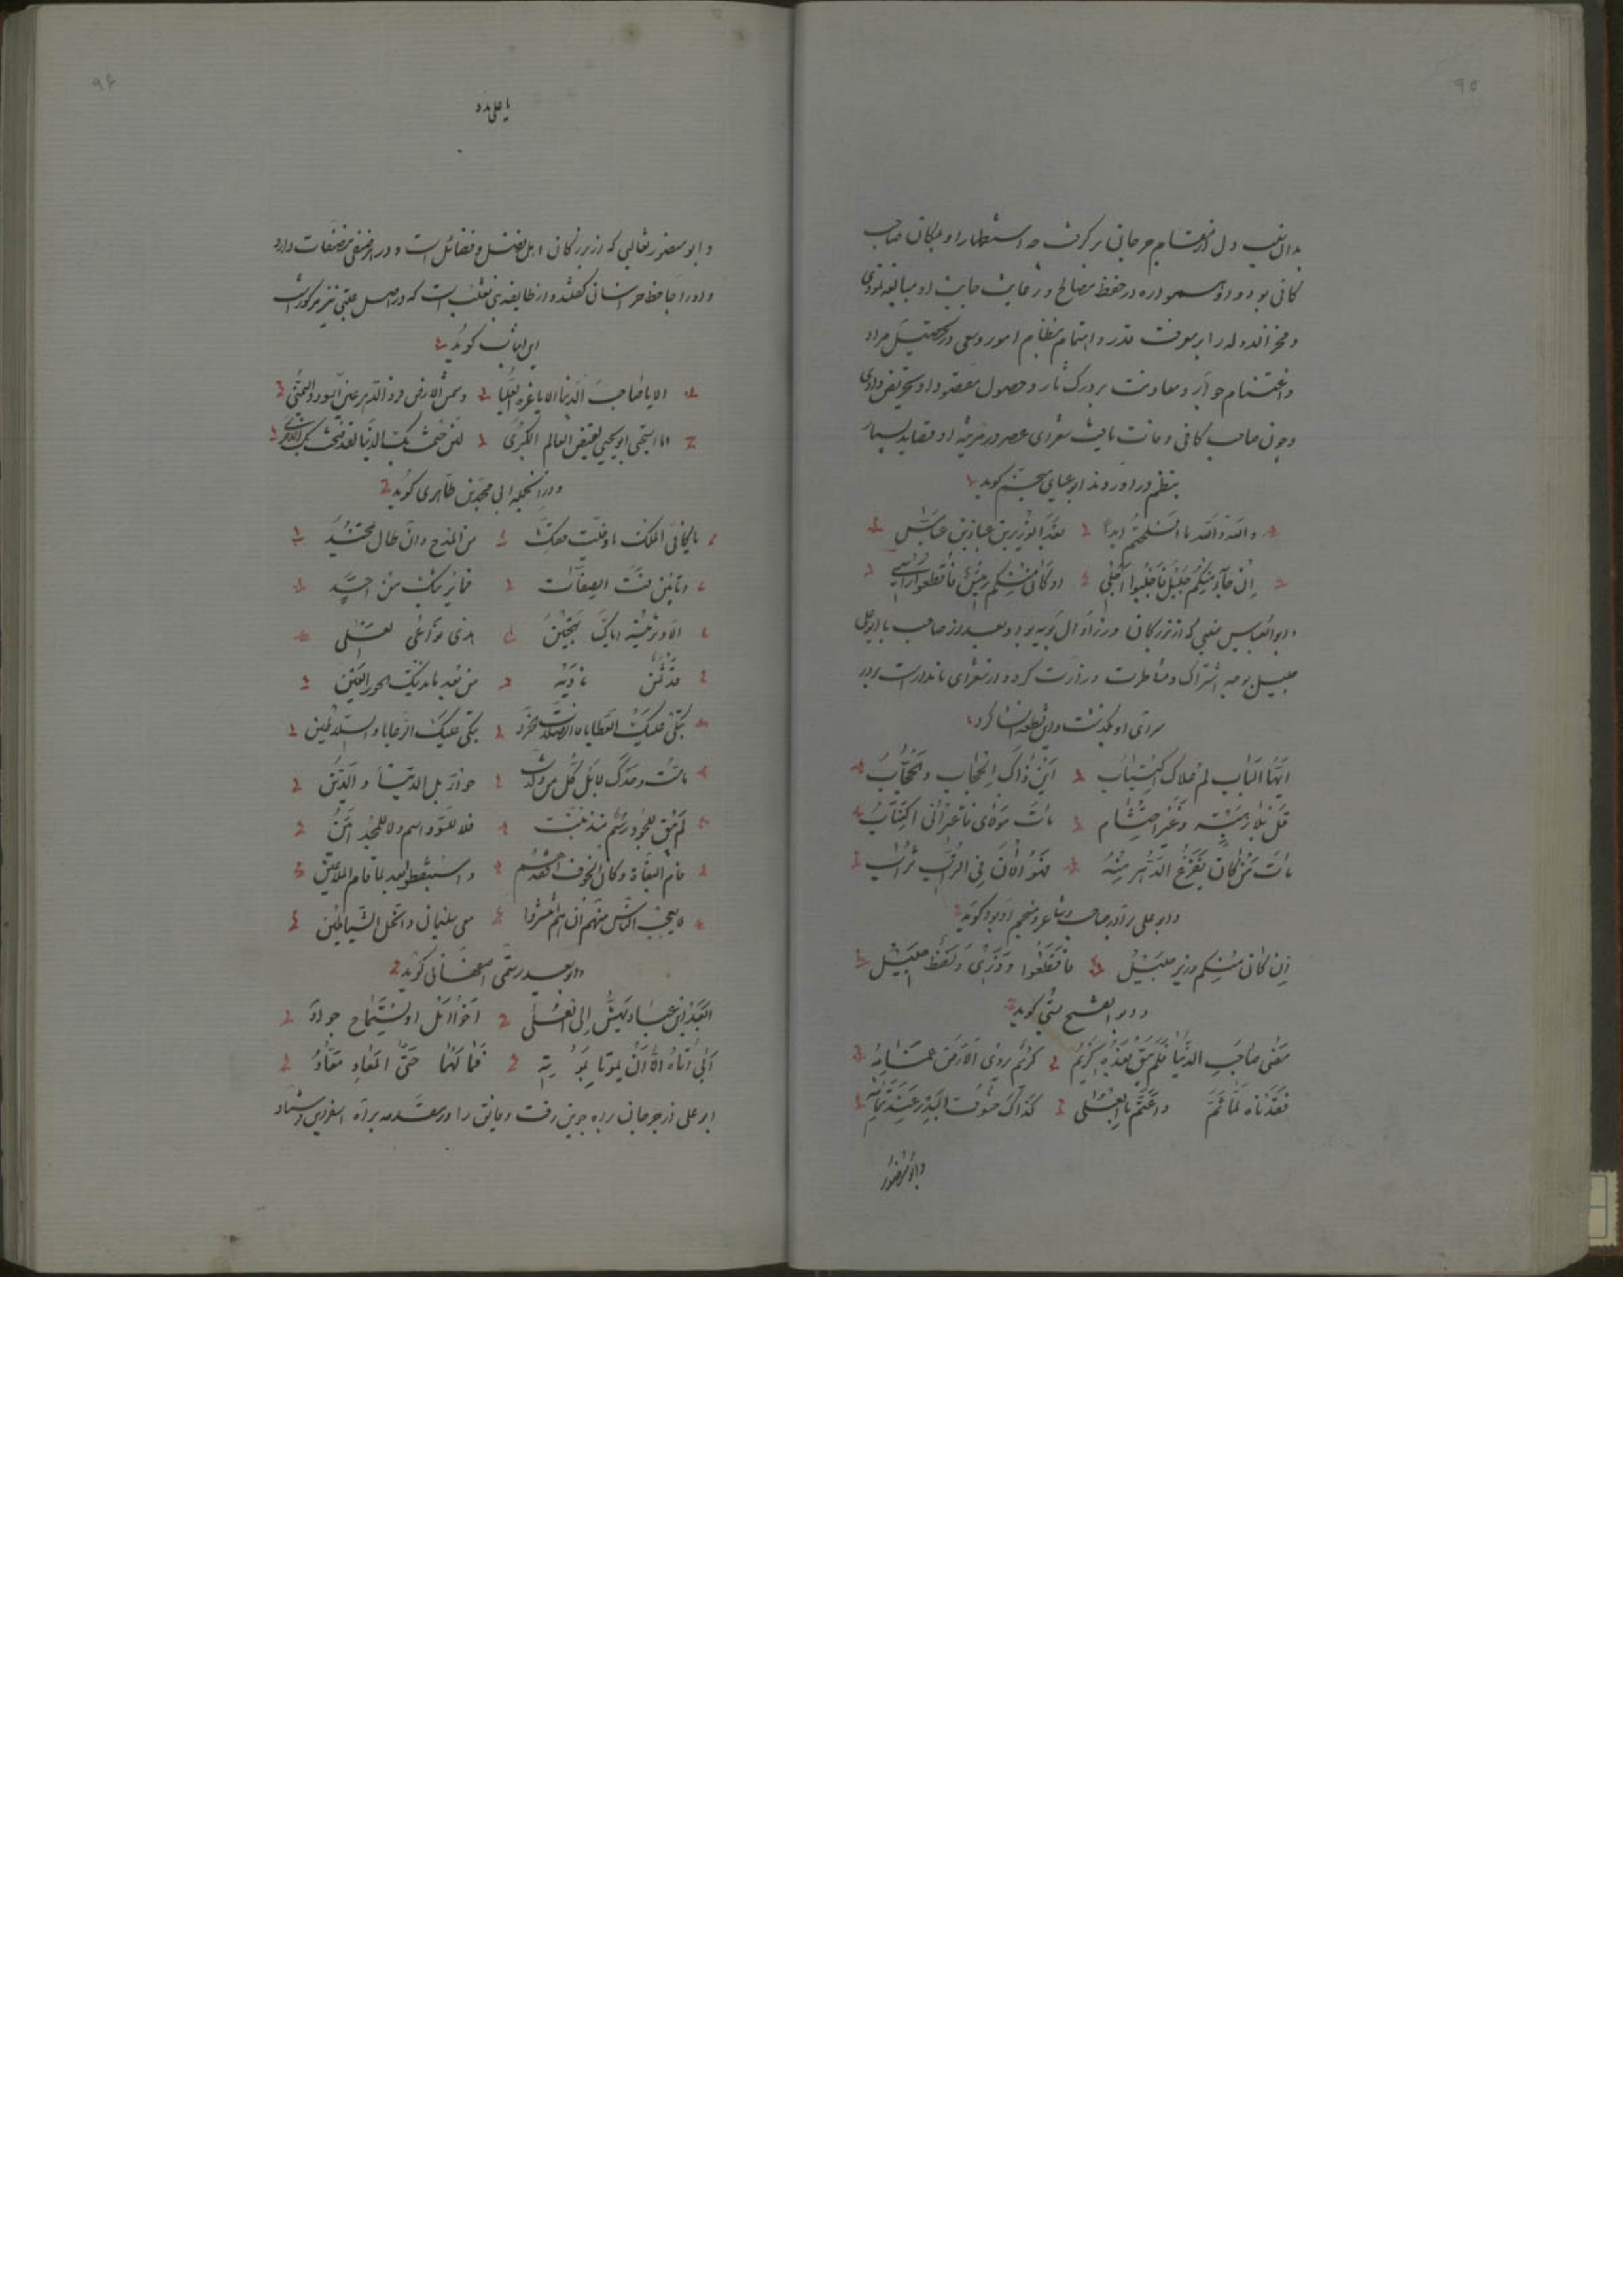 ۹۵
بداند و دل از مقام جرجان برگرفت چه استظهار او بمکان صاحب
کافی بود و او همواره در حفظ مصالح و رعایت جانب او مبالغه نمودی
و فخر الدوله را بر معرفت قدر و اهتمام بنظام امور و سعی در تحصیل مراد
و اغتنام جوار و معاونت بر درک ثار و حصول مقصود او تحریض دادی
و چون صاحب کافی وفات یافت شعرای عصر در مرثیه او قصاید بسیار
بنظم در آوردند ابو عباس منجم گوید
والله والله ما افلحتم ابدا بعد الوزیر بن عباد بن عباس
ان جاء منکم جلیل فاجلبوا اجلی او کان منکم رئیس فاقطعوا راسی
ابو العباس ضبی که از بزرگان وزراء آل بویه بود و بعد از صاحب با ابو علی
بوجه اشتراک و مشاطرت وزارت کرد و در شعرای نامدار است بر در
سرای او بگذشت و این قطعه انشا کرد
ایها الباب لم علاک اکتیاب این ذاک الحجاب والحجاب
قل بلا رهبة وغیر احتشام مات مولای فاعترانی اکتیاب
مات من کان یفزع الدهر منه فهو الان فی التراب تراب
و ابو علی برادر صاحب و شاعر و منجم او بود گوید
ان کان منکم وزیر جلیل فاقطعوا وزری جلیل
و ابو الفتح بستی گوید
مضی صاحب الدنیا فلم یبق بعده کریم کریم یروی الارض غمامه
فقدناه لما تم واعتم بالعلی کذاک خسوف البدر عند تمامه
و ابو منصور
۹۶
یا علی مدد
و ابو منصور ثعالبی که از بزرگان اهل فضل و فضائل است و در هر صنفی مصنفات دارد
و او را جاحظ خراسان گفتند و از ثعلب است که در اصل عتبی نیز مذکور است
این ابیات گوید
الا یا صاحب الدنیا الا یا غرة العلیا وشمس الارض فرد الدهر عین السودد الیمنی
اما استحی ابو یحیی لقبض العالم الکبری لئن ختمت بک الدنیا لقد فتحت بک الاخری
و در ابی محمد بن طاهری گوید
یا کافی الملک ما وفیت حقک من المدح وان طال تمجید
فت الصفات فما یرثیک من احد الا وتزیینه ایاک تهجین
من بعد ما ندبتک الحور العین
تبکی علیک العطایا والصلات تبکی علیک الرعایا والسلاطین
مات وحدک لا بل کل من ولدت حواء بل الدنیا والدین
لم یبق للجود رسم مذ ذهبت فلا للسودد اسم ولا للمجد
قام السعاة وکان الخوف اقعدهم واستیقظوا بعد ما نام الملاعین
لا یعجب الناس منهم ان هم انتشروا مضی سلیمان وانحل الشیاطین
و ابو سعید رستمی اصفهانی گوید
ابعد ابن عباد یهش الی العلی اخو امل او یستماح جواد
ابی الله الا ان یموتا بموته فما لهما حتی المعاد معاد
ابو علی از جرجان براه جوین رفت و فائق را در مقدمه براه اسفراین فرستاد